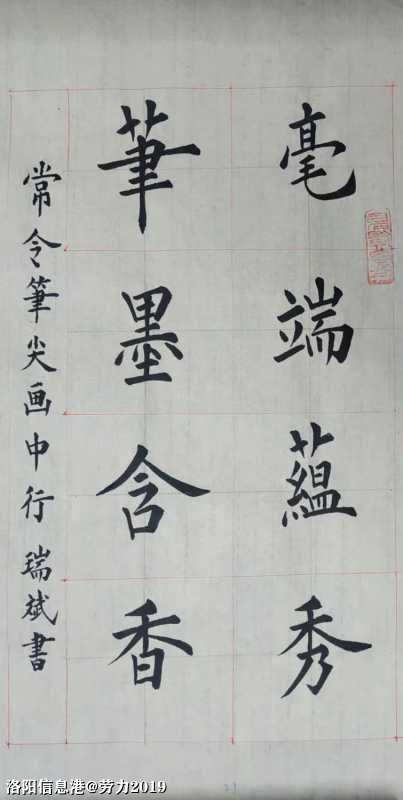 毫端蘊秀
筆墨含香
常令筆尖画中行 瑞斌書
洛阳信息港@劳力2019